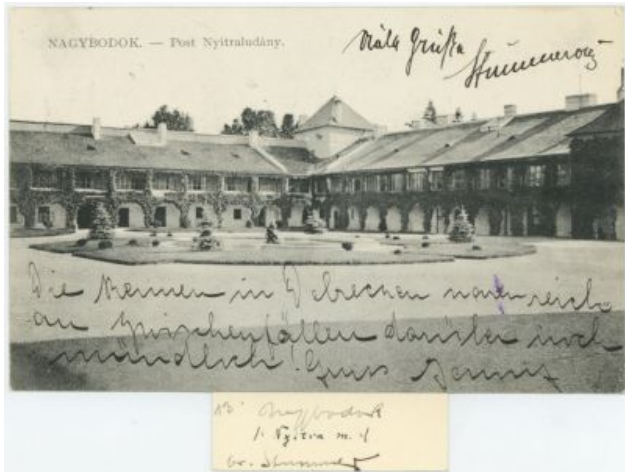 NAGYBODOK. — Post Nyitraludány.
Die Rennen in Debreczen waren reich
an Zwischenfällen darüber noch
mündlich! Gruss
Nagybodok
/: Nyitra m. :/